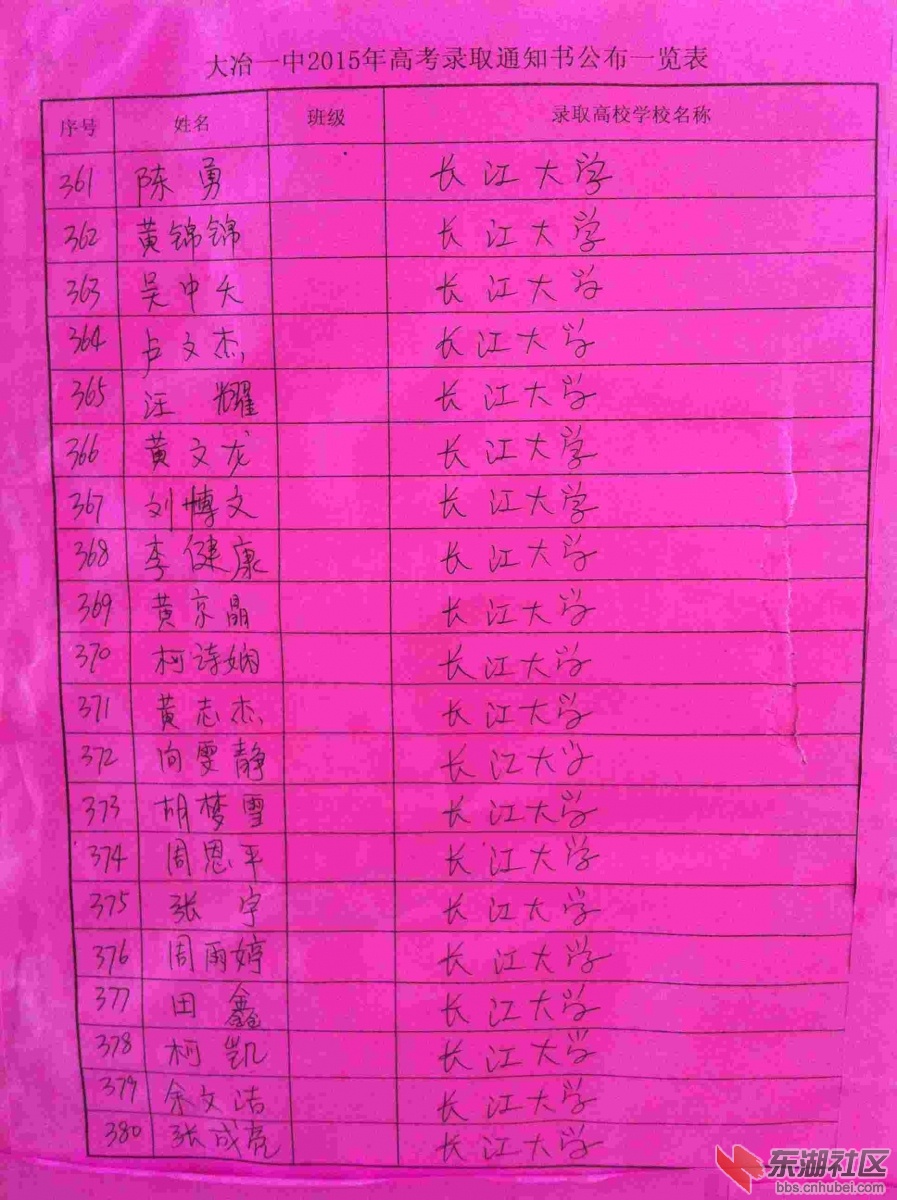 大冶一中2015年高考录取通知书公布一览表
序号 姓名 班级 录取高校学校名称
361 陈勇 长江大学
362 黄锦锦 长江大学
363 吴中天 长江大学
364 卢文杰 长江大学
365 汪耀 长江大学
366 黄文龙 长江大学
367 刘博文 长江大学
368 李健康 长江大学
369 黄京晶 长江大学
370 柯诗娴 长江大学
371 黄志杰 长江大学
372 向雯静 长江大学
373 胡梦雪 长江大学
374 周恩平 长江大学
375 张宇 长江大学
376 周雨婷 长江大学
377 田鑫 长江大学
378 柯凯 长江大学
379 余文洁 长江大学
380 张成亮 长江大学
东湖社区
bbs.cnhubei.com